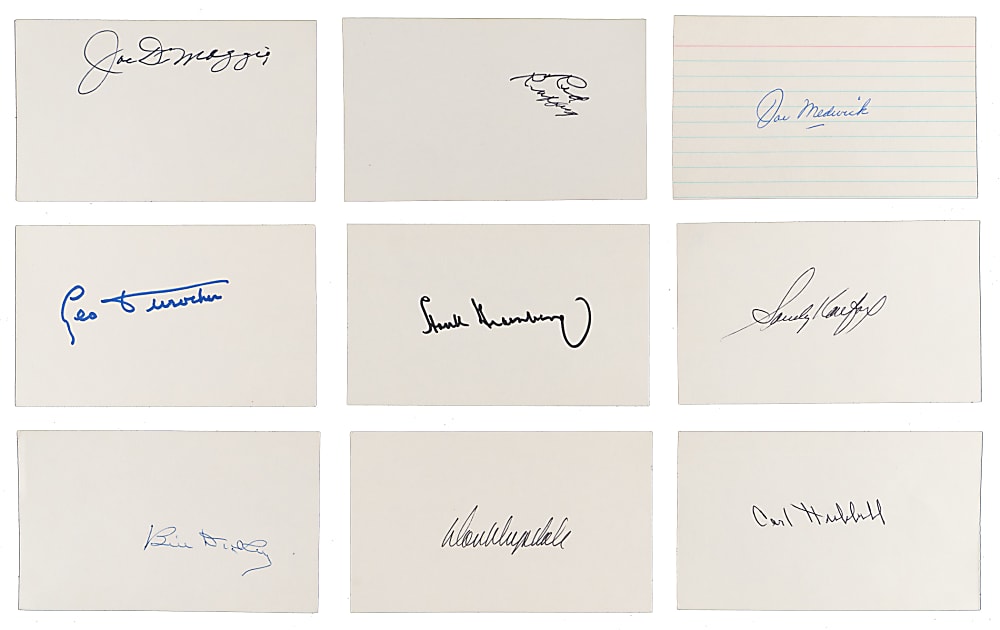 Joe DiMaggio
Red
Ruffing
Joe Medwick
Leo Durocher
Hank Greenberg
Sandy Koufax
Bill Dickey
Don Drysdale
Carl Hubbell